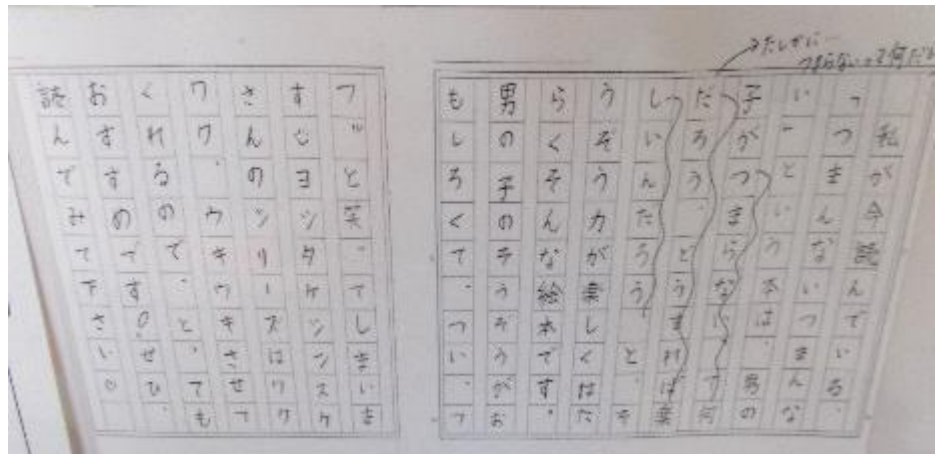 たしかに…
つまらないって何だろ
私が今読んでいる、
「つまんないつまんな
い」という本は、男の
子が「つまらないって何
だろう、どうすれば楽
しいんだろう」と、そ
うぞう力が楽しくはた
らくそんな絵本です。
男の子のそうぞうがお
もしろくて、つい、つ
フッと笑ってしまいま
す。ヨシタケシンスケ
さんのシリーズはワク
ワク、ウキウキさせて
くれるので、とても
おすすめです!ぜひ、
読んでみて下さい♡